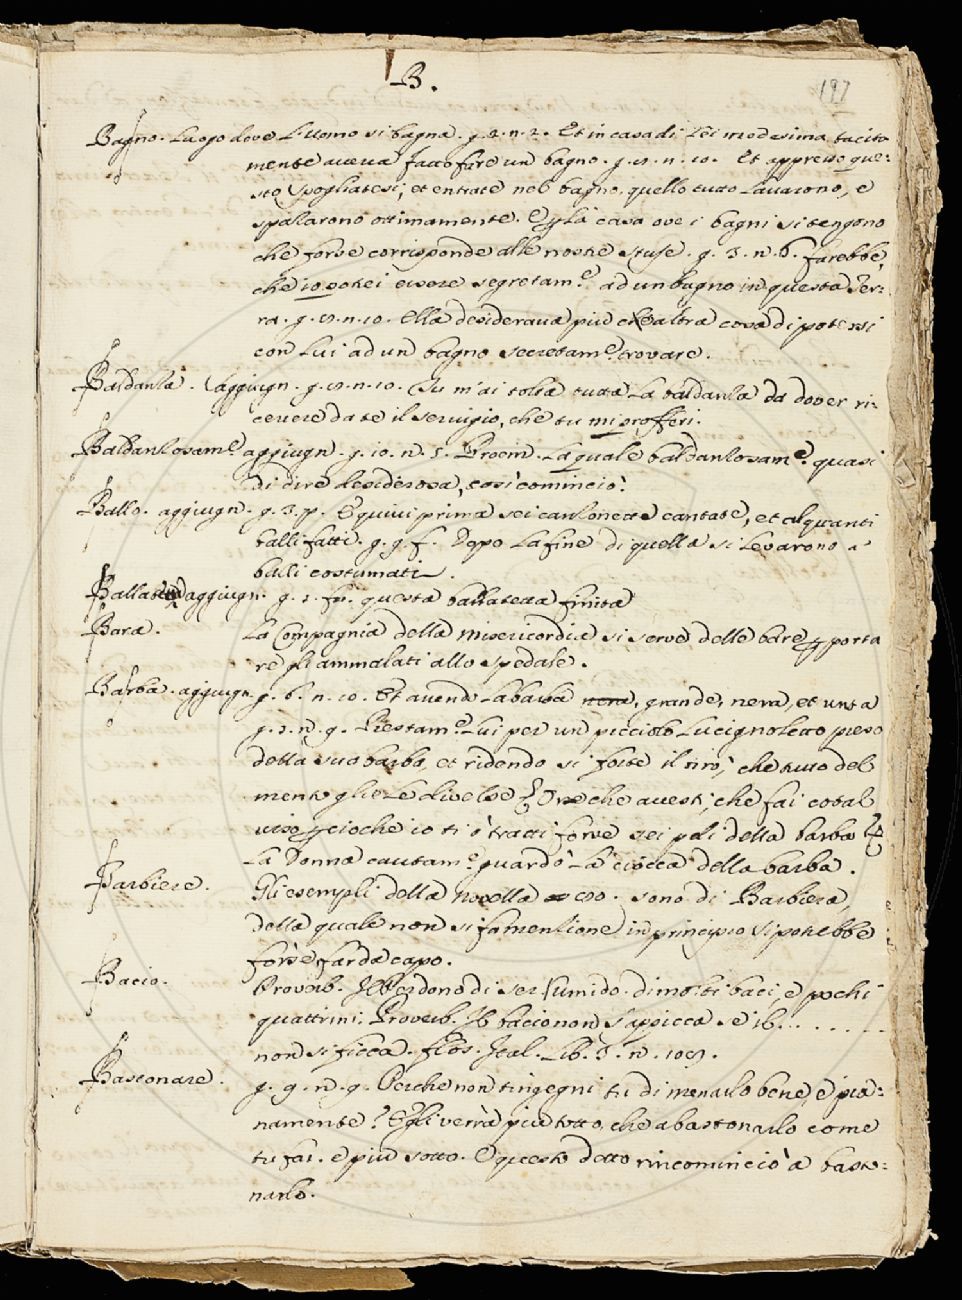 B.
197
Bagno. Luogo dove L'uomo si bagna. g. 2. n. 2. Et in casa di Lei medesima tacita
mente aveva fatto fare un bagno. g. 3. n. 10. Et appresso que:
sto spogliatesi, et entrate nel bagno, quello tutto Lavarono, e
spallarono ottimamente. E p La casa ove i bagni si tengono
che forse corrisponde alle nostre stufe. g. 3. n. 6. farebbe,
che io potei essere segretam.e ad un bagno in questa Ter:
ra. g. n. 10. Ella desiderava più che altra cosa di potersi
con Lui ad un bagno secretam.e trovare.
Baldanza. aggiugn. g. n. 10. Tu m'ai tolta tutta La baldanza da dover ri:
cevere da te il servigio, che tu mi profferi.
Baldanzosam.e aggiugn. g. 10. n. 5. Proem. La quale baldanzosam.e quasi
di dire desiderosa, così cominciò.
Ballo. aggiugn. g. 3. p. E quivi prima sei canzonette cantate, et alquanti
balli fatti. g. 9. f. Dopo La fine di quella si Levarono a'
balli costumati.
aggiugn. g. 1. fu. questa ballatetta finita
Bara. La Compagnia della Misericordia si serve delle bare p porta
re gli ammalati allo spedale.
Barba. aggiugn. g. 6. n. 10. Et avendo La barba nera, grande, nera, et unta
g. 3. n. 9. Prestam.e Lui per un picciolo Lucignoletto preso
della sua barba, et ridendo si forte il tirò, che tutto del
mento gliele divelse E Ora che avesti, che fai cotal
viso p cioche io ti ò tratti forse sei peli della barba E
La Donna cautam.e guardò La ciocca della barba.
Barbiere. Gli esempli della Novella sono di Barbiera,
della quale non si fa menzione in principio si potrebbe
forse far da capo.
Bacio. Proverb. Il perdono di ser fumido. di molti baci, e pochi
quattrini. Proverb. Il bacio non s'appicca se il. . . . . . .
non si ficca. flos. Ital. Lib. 3. n.
Bastonare. g. 9. n. 9. Perche non t'ingegni tu di menarlo bene, e pia:
namente? Egli verrà più tosto, che a bastonarlo come
tu fai. e più sotto. E questo detto rincominciò a basto:
narlo.